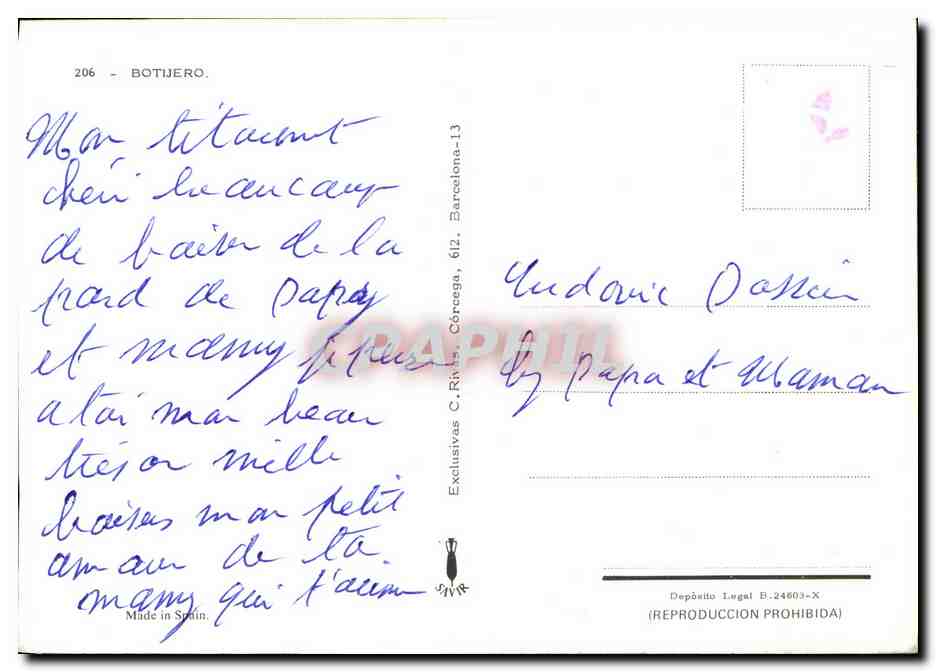 206 - BOTIJERO.
Mon
chéri beaucoup
de baiser de la
pard de Papy
et mamy je pense
a toi mon beau
trésor mille
baisers mon petit
amour de ta
mamy qui t'aime
Made in Spain.
Exclusivas C. Rivas, Córcega, 612. Barcelona-13
SAVIR
CPAPHIL
Ludovic
Papa et Maman
Depósito Legal B.24603-X
(REPRODUCCION PROHIBIDA)